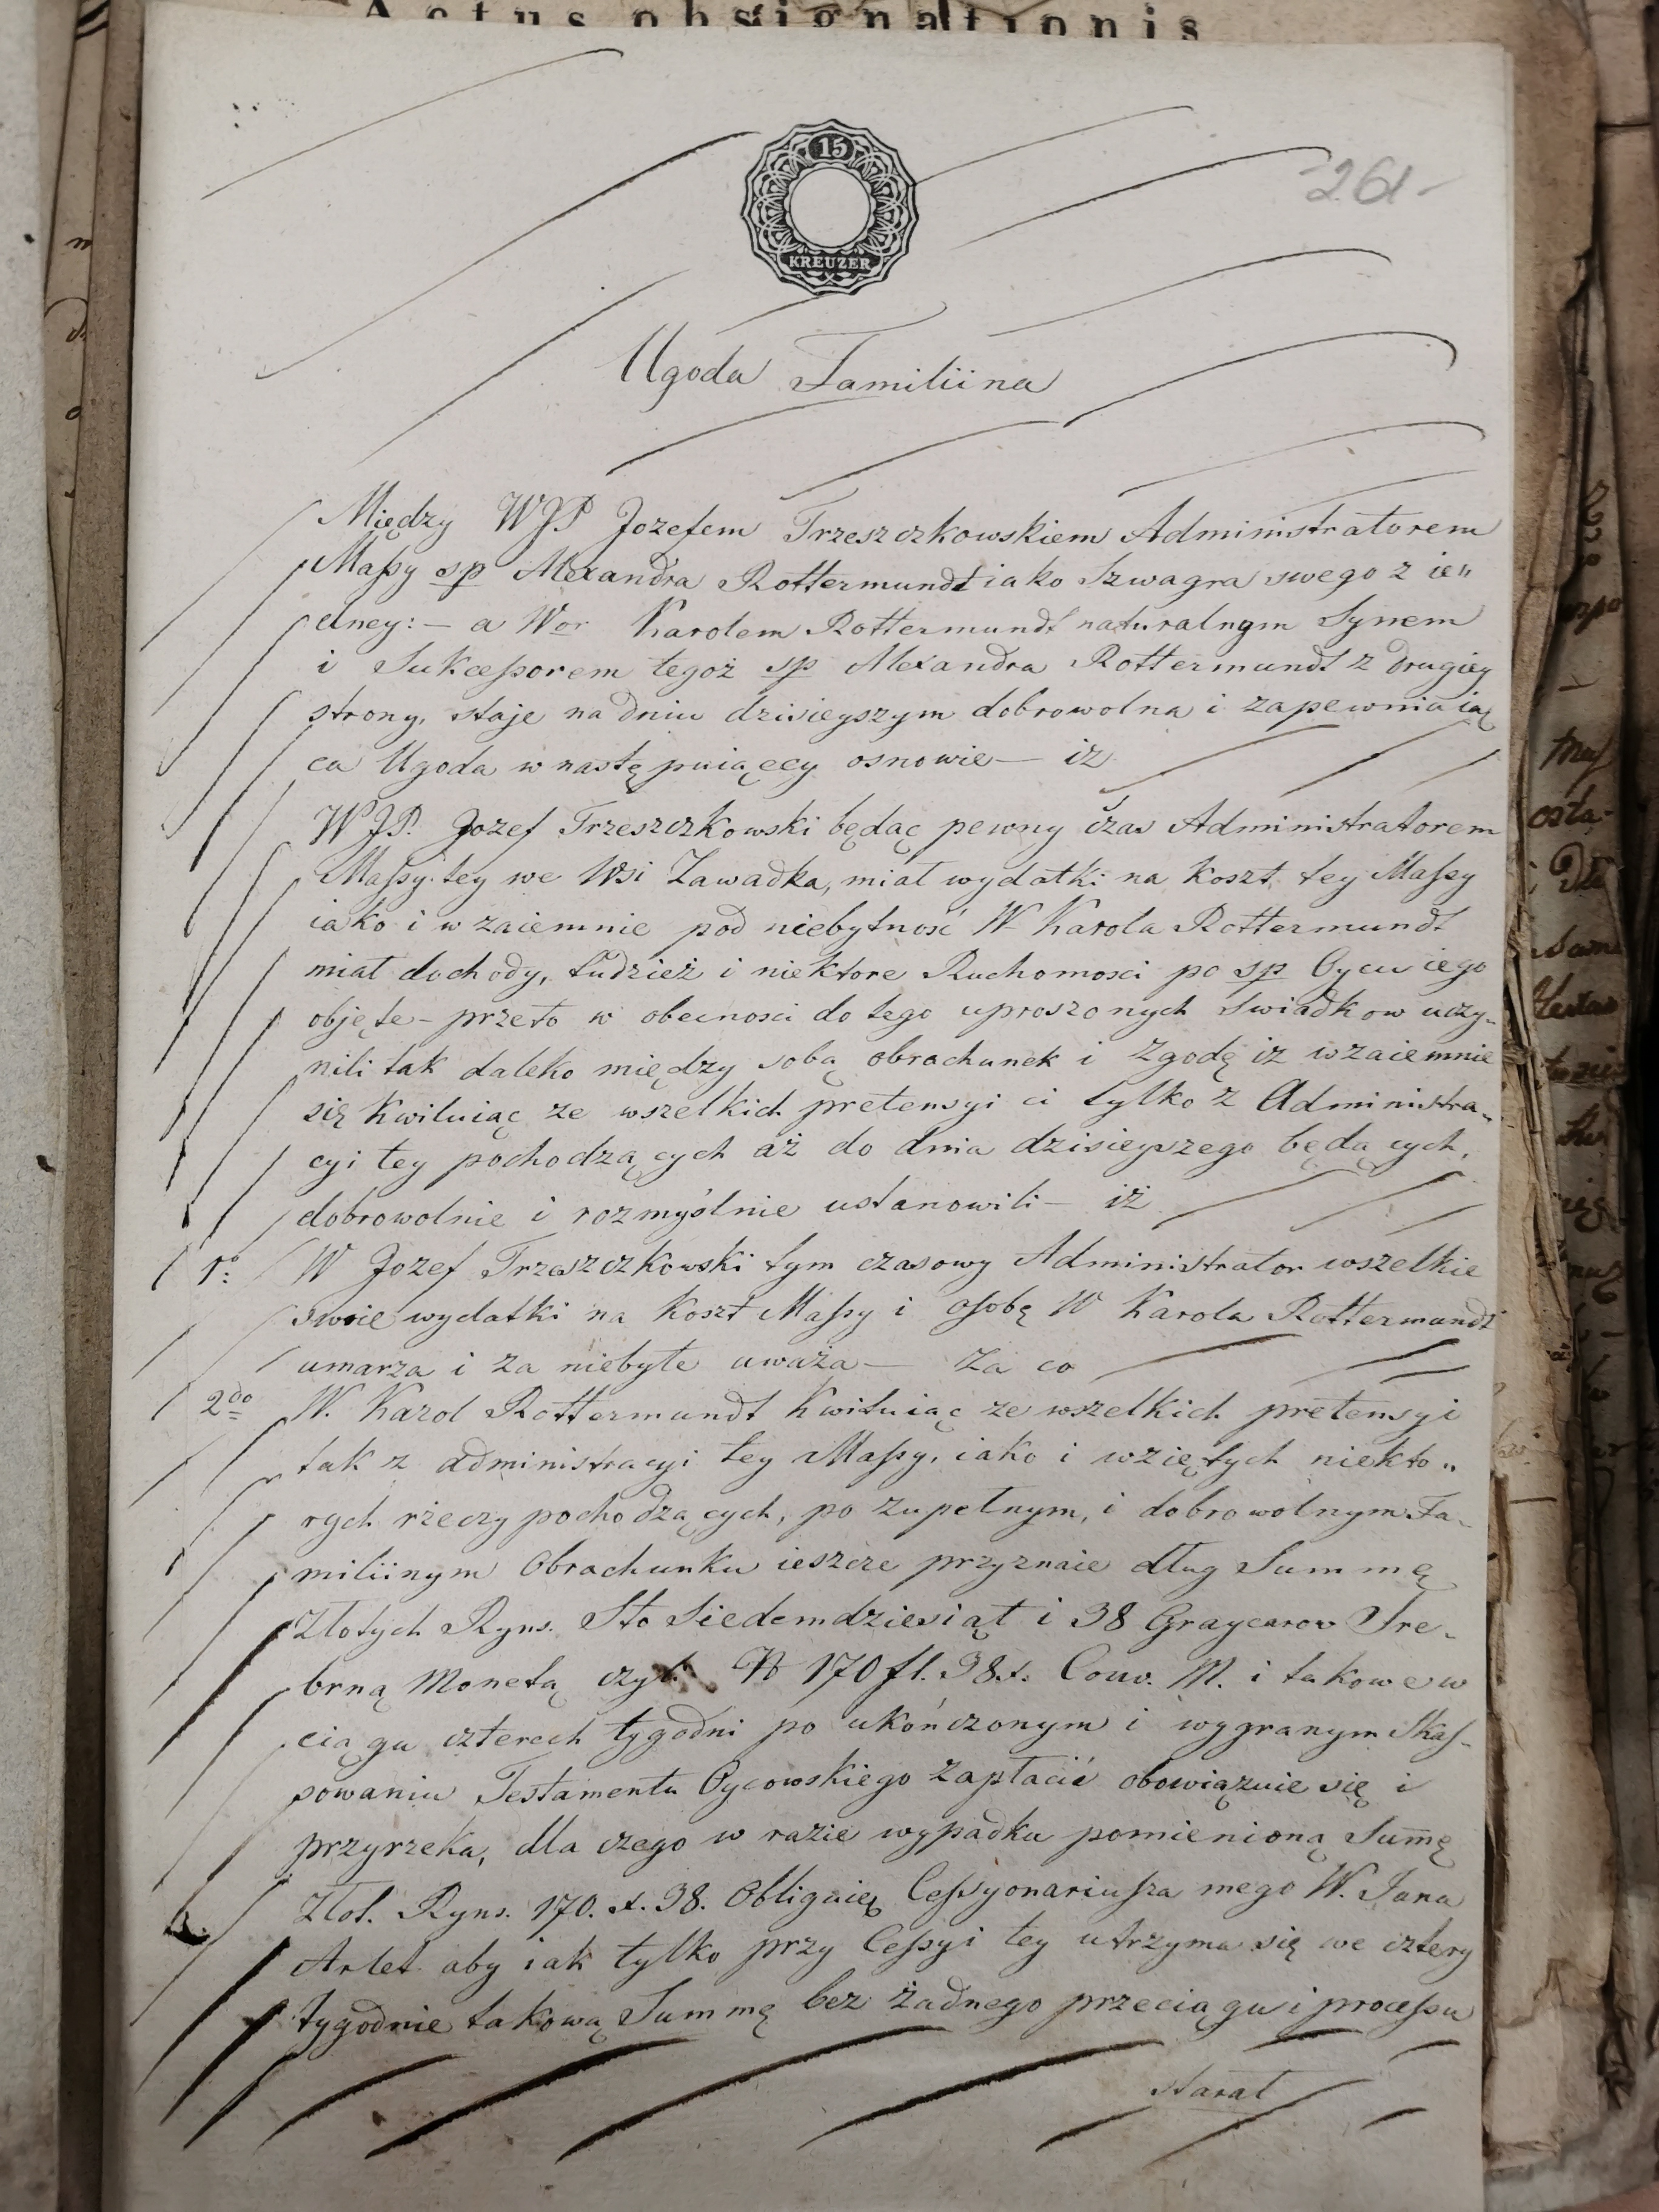 Actus obsignationis
15
KREUZER
261
Ugoda Familiina
Między WJP Jozefem Trzeszczkowskiem Administratorem
Massy sp Alexandra Rottermundt iako Szwagra swego z ie„
dney:— a Wor Karolem Rottermundt naturalnym Synem
i Sukcessorem tegoż sp Alexandra Rottermundt z drugiey
strony, staje na dniu dzisieyszym dobrowolna i zapewniaią
ca Ugoda w nastę puiącey osnowie— iż
WJP. Jozef Trzeszczkowski będąc pewny czas Administratorem
Massy tey we Wsi Zawadka, miał wydatki na koszt tey Massy
iako i wzaiemnie pod niebytność W Karola Rottermundt
miał dochody, tudzież i niektore Ruchomosci po sp Oycu iego
objęte— przeto w obecnosci do tego uproszonych swiadkow uczy-
nili tak daleko między sobą obrachunek i Zgodę iż wzaiemnie
się Kwituiąc ze wszelkich pretensyi ci tylko z Administra-
cyi tey pochodzących aż do dnia dzisieyszego będących,
dobrowolnie i rozmyślnie ustanowili— iż
1o: W Jozef Trzeszczkowski tym czasowy Administrator wszelkie
swoie wydatki na koszt Massy i osobę W Karola Rottermundt
umarza i za niebyłe uważa— Za co
2do W. Karol Rottermundt Kwituiąc ze wszelkich pretensyi
tak z administracyi tey Massy, iako i wziętych niekto„
rych rzeczy pochodzących, po zupełnym, i dobrowolnym Fa-
miliinym Obrachunku ieszcze przyznaie dług Summę
Złotych Ryns. Sto Siedemdziesiąt i 38 Graycarow Sre-
brną Monetą czyl. N 170 fl. 38 x. Conv. M. i takowe w
ciągu czterech tygodni po ukończonym i wygranym Skas-
sowaniu Testamentu Oycowskiego zapłacić obowiązuie się i
przyrzeka, dla czego w razie wypadku pomienioną Sum̅ę
Złot. Ryns. 170. x. 38. Obliguię Cessyonariusza mego W. Jana
Arlet aby iak tylko przy Cessyi tey utrzyma się we cztery
tygodnie takową Summę bez żadnego przeciągu i processu
starał